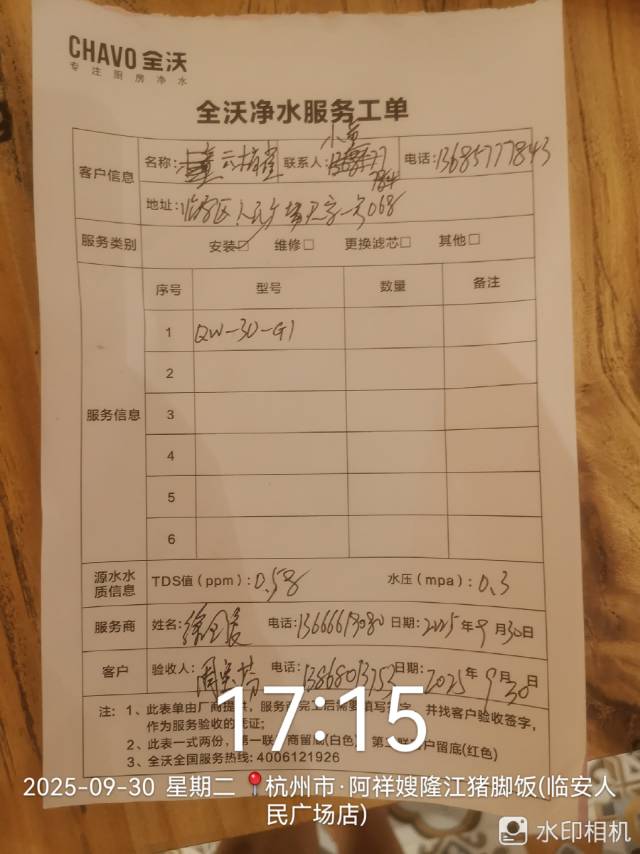 CHAVO 全沃
专注厨房净水
全沃净水服务工单
客户信息 名称: 联系人: 电话:13685777843
地址:临安区人民广场天字一号068
服务类别 安装☑ 维修□ 更换滤芯□ 其他□
服务信息 序号 型号 数量 备注
1 QW-30-G1
2
3
4
5
6
源水水质信息 TDS值(ppm):0.58 水压(mpa):0.3
服务商 姓名:徐 电话:13666619080 日期:2025年9月30日
客户 验收人:周 电话:13868013753 日期:2025年9月30日
注: 1、此表单由厂商提供,服务商完工后需要填写签字,并找客户验收签字,
作为服务验收的凭证;
2、此表一式两份,第一联 商留底(白色) 第二联客户留底(红色)
3、全沃全国服务热线: 4006121926
17:15
2025-09-30 星期二 杭州市·阿祥嫂隆江猪脚饭(临安人
民广场店)
水印相机